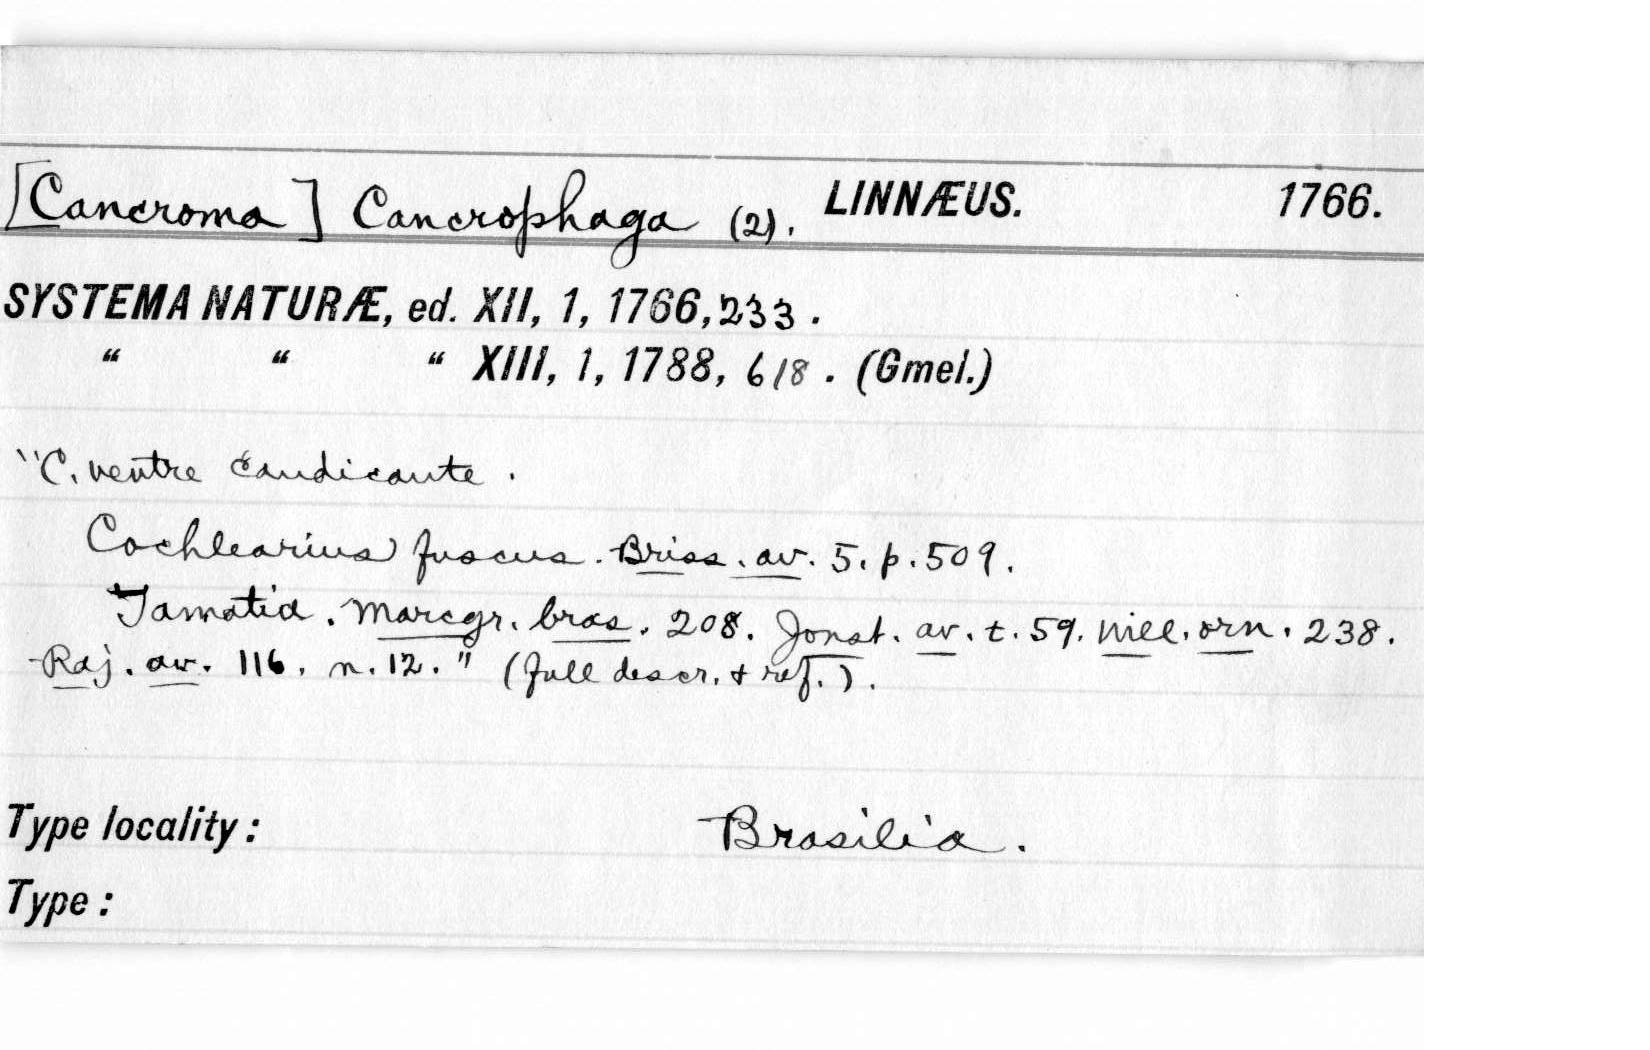 [Cancroma] Cancrophaga (2). LINNÆUS. 1766.
SYSTEMA NATURÆ, ed. XII, 1, 1766, 233.
“ “ “ XIII, 1, 1788, 618. (Gmel.)
"C. ventre candicante.
Cochlearius fuscus. Briss. av. 5. p. 509.
Tamatia. Marcgr. bras. 208. Jonst. av. t. 59. Will. orn. 238.
Raj. av. 116. n. 12." (full descr. + ref.).
Type locality: Brasilia.
Type: